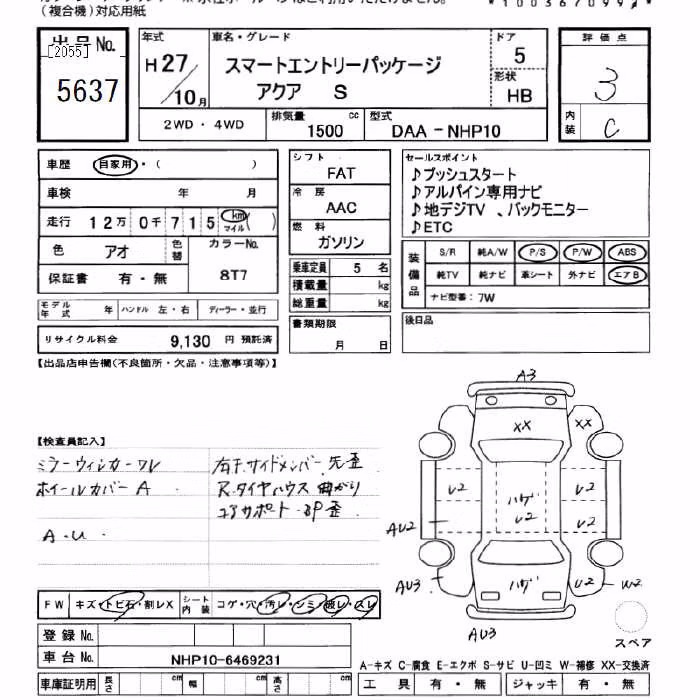 (複合機)対応用紙
*1003670999*
出品No. [2055] 5637
年式 H27/10月
車名・グレード スマートエントリーパッケージ アクア S
ドア 5
形状 HB
評価点 3
内装 C
2WD・4WD
排気量 1500 cc
型式 DAA-NHP10
車歴 自家用・( )
車検 年 月
走行 12万0千715 km マイル ( )
色 アオ 色替 カラーNo. 8T7
保証書 有・無
モデル年式 年 ハンドル 左・右 ディーラー・並行
リサイクル料金 9,130 円 預託済
シフト FAT
冷房 AAC
燃料 ガソリン
乗車定員 5 名
積載量 kg
総重量 kg
書類期限 月 日
セールスポイント
♪プッシュスタート
♪アルパイン専用ナビ
♪地デジTV 、バックモニター
♪ETC
装備品 S/R 純A/W P/S P/W ABS
純TV 純ナビ 革シート 外ナビ エアB
ナビ型番:7W
後日品
【出品店申告欄(不良箇所・欠品・注意事項等)】
【検査員記入】
ミラーウィンカーワレ
ホイールカバー A
A.U
右F.サイドメンバー先歪
R.タイヤハウス曲がり
コアサポート・BP歪
A3
XX
XX
U2
ハゲ
U2
U2
U2
AU2
AU3
ハゲ
U2
W2
AU3
スペア
FW キズ・トビ石・割レX シート内装 コゲ・穴・汚レ・シミ・破レ・スレ
登録No.
車台No. NHP10-6469231
車庫証明用 長さ cm 幅 cm 高さ cm
A-キズ C-腐食 E-エクボ S-サビ U-凹ミ W-補修 XX-交換済
工具 有・無 ジャッキ 有・無